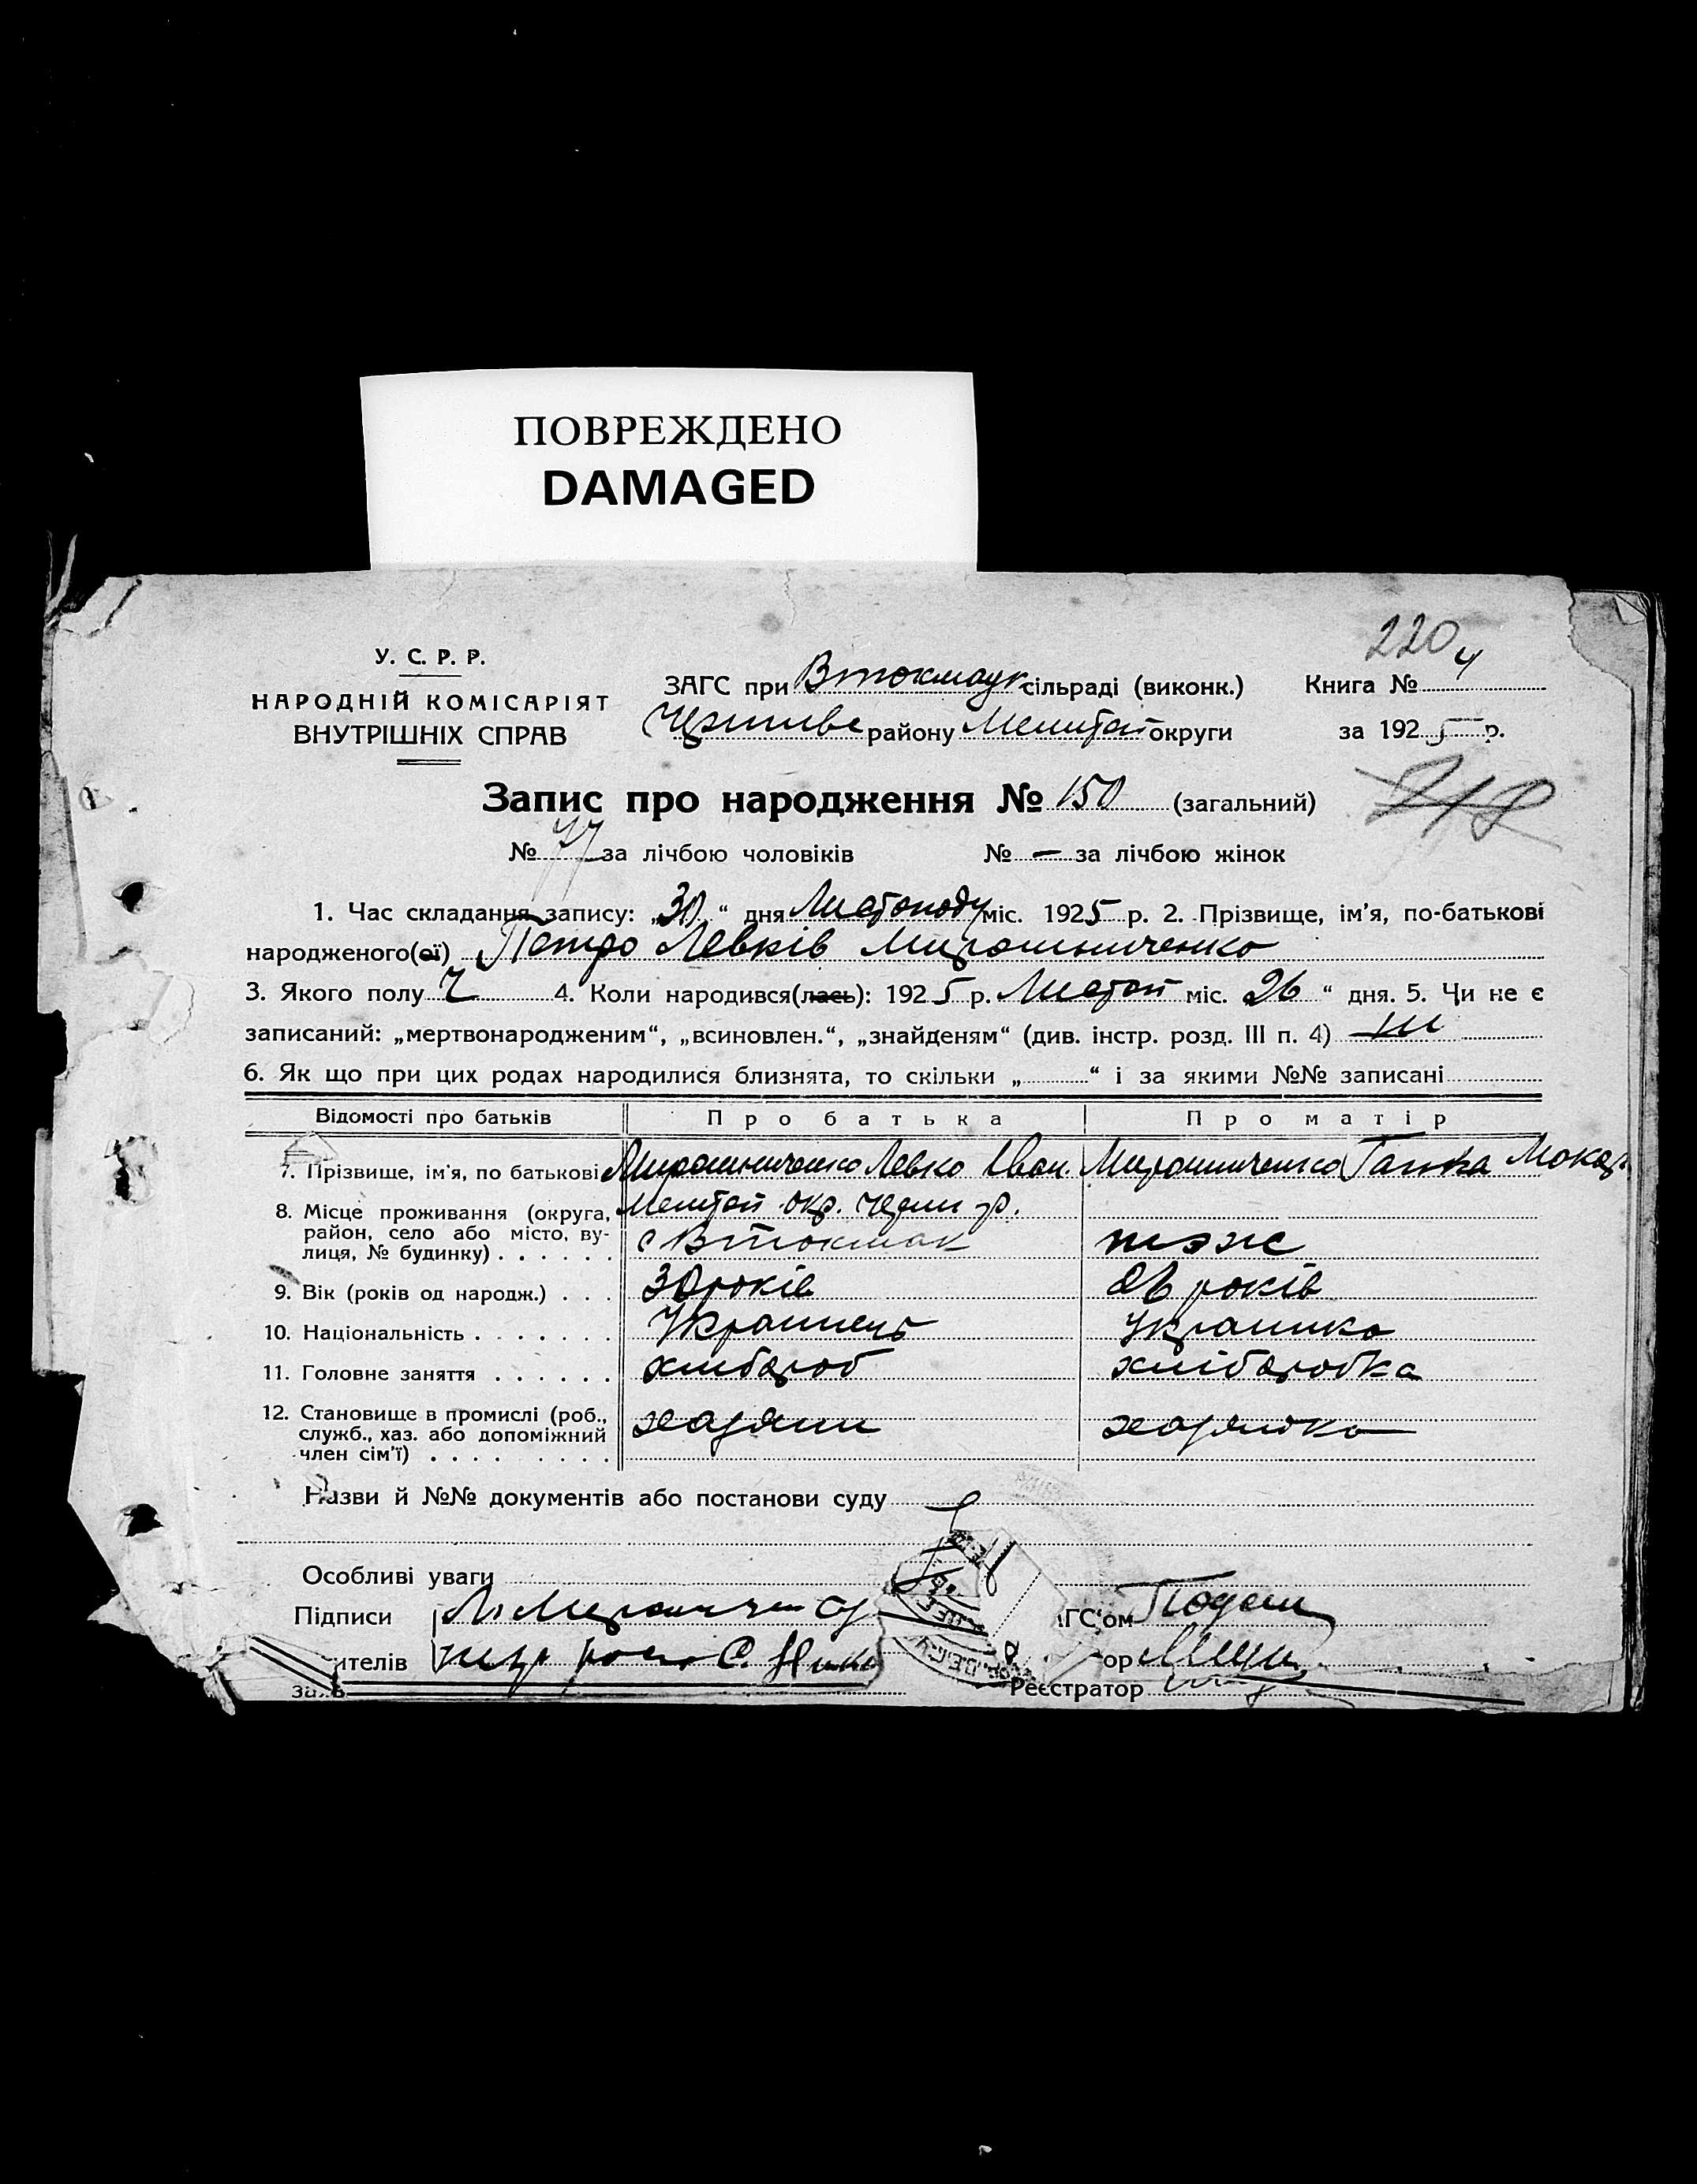 ПОВРЕЖДЕНО
DAMAGED
220
У. С. Р. Р.
НАРОДНІЙ КОМІСАРІЯТ
ВНУТРІШНІХ СПРАВ
ЗАГС при Втокмаук сільраді (виконк.)
району Мелітоп округи
Книга № 4
за 1925 р.
218
Запис про народження № 150 (загальний)
№ 77 за лічбою чоловіків № — за лічбою жінок
1. Час складання запису: „30“ дня Листопаду міс. 1925 р. 2. Прізвище, ім'я, по-батькові
народженого(ої) Петро Левків Мирошниченко
3. Якого полу Ч 4. Коли народився(лась): 1925 р. Листоп міс. 26 “ дня. 5. Чи не є
записаний: „мертвонародженим“, „всиновлен.“, „знайденям“ (див. інстр. розд. III п. 4)
6. Як що при цих родах народилися близнята, то скільки „ “ і за якими №№ записані
Відомості про батьків Про батька Про матір
7. Прізвище, ім'я, по батькові Мирошниченко Левко Іван. Мирошниченко Ганна Макар
8. Місце проживання (округа, Мелітоп окр. Черни р.
район, село або місто, ву- с Втокмак тэж
лиця, № будинку)
9. Вік (років од народж.) 30 років 26 років
10. Національність Українець Українка
11. Головне заняття хлібороб хліборобка
12. Становище в промислі (роб., хазяин хазяйка
служб., хаз. або допоміжний
член сім'ї)
Назви й №№ документів або постанови суду
Особливі уваги
Підписи АГС'ом
ителів ор
Реєстратор